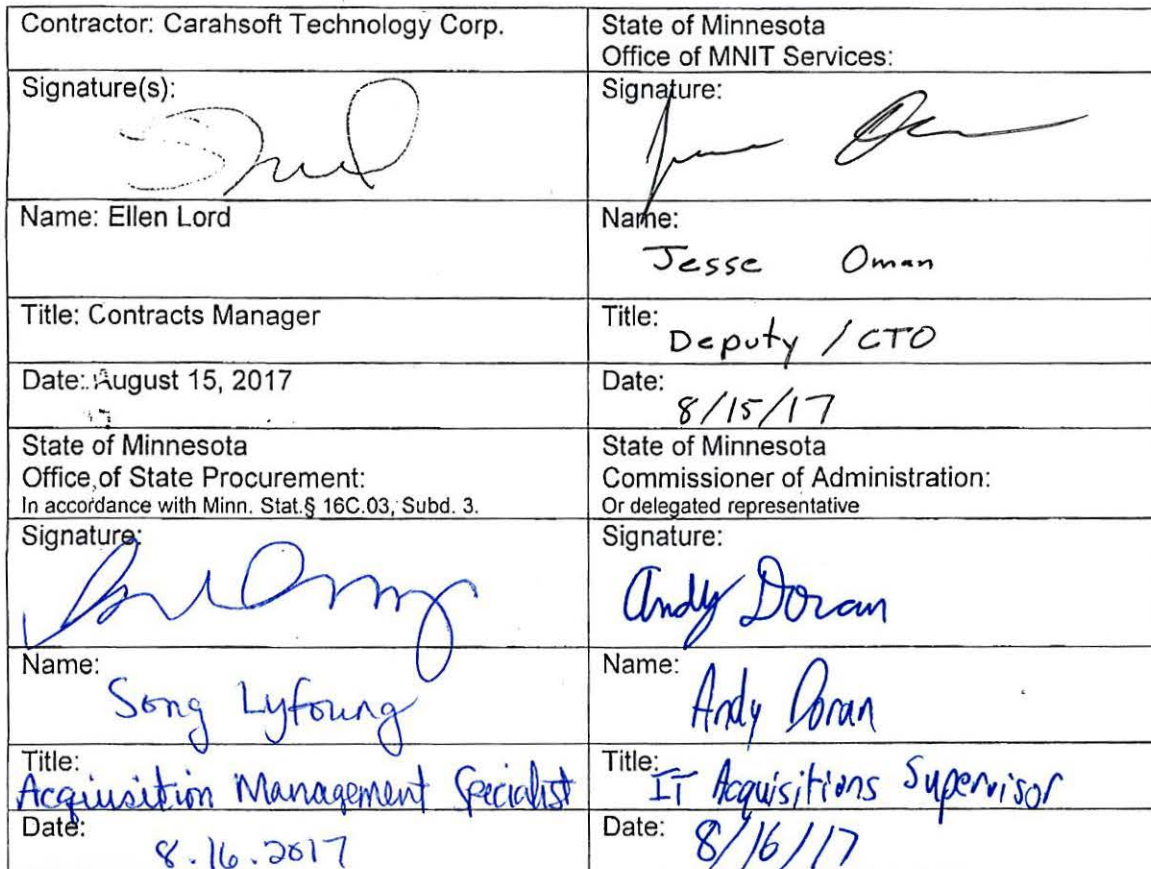 Contractor: Carahsoft Technology Corp.
State of Minnesota
Office of MNIT Services:
Signature(s):
Signature:
Name: Ellen Lord
Name:
Jesse Oman
Title: Contracts Manager
Title:
Deputy / CTO
Date: August 15, 2017
Date:
8/15/17
State of Minnesota
Office of State Procurement:
In accordance with Minn. Stat.§ 16C.03, Subd. 3.
State of Minnesota
Commissioner of Administration:
Or delegated representative
Signature:
Signature:
Andy Doran
Name:
Song Lyfoung
Name:
Andy Doran
Title:
Acquisition Management Specialist
Title:
IT Acquisitions Supervisor
Date:
8.16.2017
Date:
8/16/17